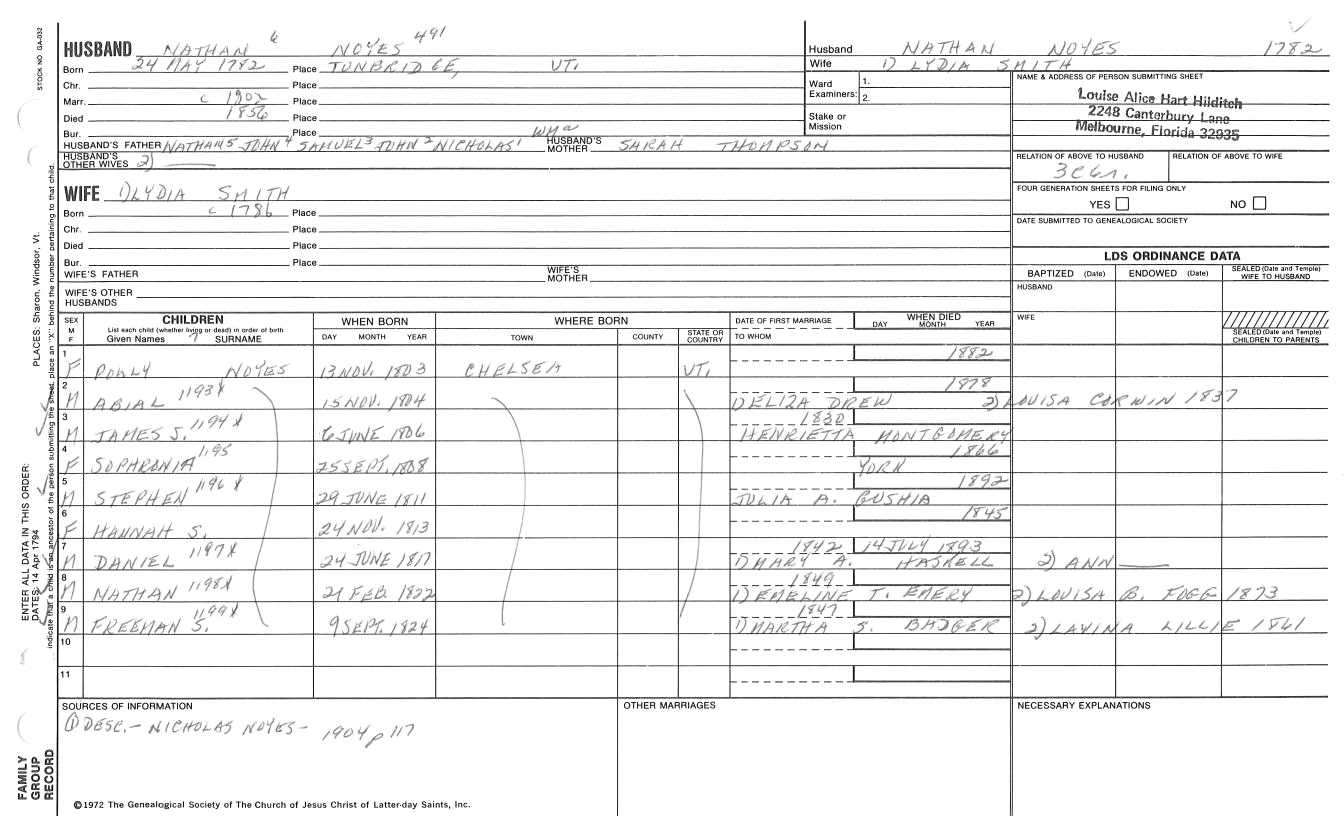 STOCK NO GA-032
PLACES: Sharon, Windsor, Vt.
ENTER ALL DATA IN THIS ORDER:
DATES: 14 Apr 1794
indicate that a child is an ancestor of the person submitting the sheet, place an "X" behind the number pertaining to that child.
FAMILY GROUP RECORD
HUSBAND NATHAN 6 NOYES 491
Born 24 MAY 1782 Place TUNBRIDGE, VT.
Chr. Place
Marr. c 1802 Place
Died 1856 Place
Bur. Place
HUSBAND'S FATHER NATHAN5 JOHN4 SAMUEL3 JOHN2 NICHOLAS1 Wma HUSBAND'S MOTHER SARAH THOMPSON
HUSBAND'S OTHER WIVES 2)
WIFE 1) LYDIA SMITH
Born c 1786 Place
Chr. Place
Died Place
Bur. Place
WIFE'S FATHER WIFE'S MOTHER
WIFE'S OTHER HUSBANDS
Husband NATHAN NOYES 1782
Wife 1) LYDIA SMITH
Ward Examiners: 1. 2.
Stake or Mission
NAME & ADDRESS OF PERSON SUBMITTING SHEET
Louise Alice Hart Hilditch
2248 Canterbury Lane
Melbourne, Florida 32935
RELATION OF ABOVE TO HUSBAND RELATION OF ABOVE TO WIFE
3C6r.
FOUR GENERATION SHEETS FOR FILING ONLY
YES NO
DATE SUBMITTED TO GENEALOGICAL SOCIETY
LDS ORDINANCE DATA
BAPTIZED (Date) ENDOWED (Date) SEALED (Date and Temple) WIFE TO HUSBAND
HUSBAND
WIFE
SEALED (Date and Temple) CHILDREN TO PARENTS
SEX M F CHILDREN WHEN BORN WHERE BORN DATE OF FIRST MARRIAGE WHEN DIED
List each child (whether living or dead) in order of birth
Given Names 7 SURNAME DAY MONTH YEAR TOWN COUNTY STATE OR COUNTRY TO WHOM DAY MONTH YEAR
1 1882
F POLLY NOYES 13 NOV. 1803 CHELSEA VT.
2 1878
M ABIAL 1193X 15 NOV. 1804 1) ELIZA DREW 2) LOUISA CORWIN 1837
3 1830
M JAMES S. 1194X 6 JUNE 1806 HENRIETTA MONTGOMERY
4 1866
F SOPHRONIA 1195 25 SEPT. 1808 YORK
5 1892
M STEPHEN 1196X 29 JUNE 1811 JULIA A. GUSHIA
6 1845
F HANNAH S. 24 NOV. 1813
7 1842 14 JULY 1893
M DANIEL 1197X 24 JUNE 1817 1) MARY A. HASKELL 2) ANN
8 1849
M NATHAN 1198X 21 FEB. 1822 1) EMELINE T. EMERY 2) LOUISA B. FOGG 1873
9 1847
M FREEMAN S. 1199X 9 SEPT. 1824 1) MARTHA S. BADGER 2) LAVINA LILLIE 1861
10
11
SOURCES OF INFORMATION OTHER MARRIAGES NECESSARY EXPLANATIONS
① DESC. - NICHOLAS NOYES - 1904 p 117
©1972 The Genealogical Society of The Church of Jesus Christ of Latter-day Saints, Inc.